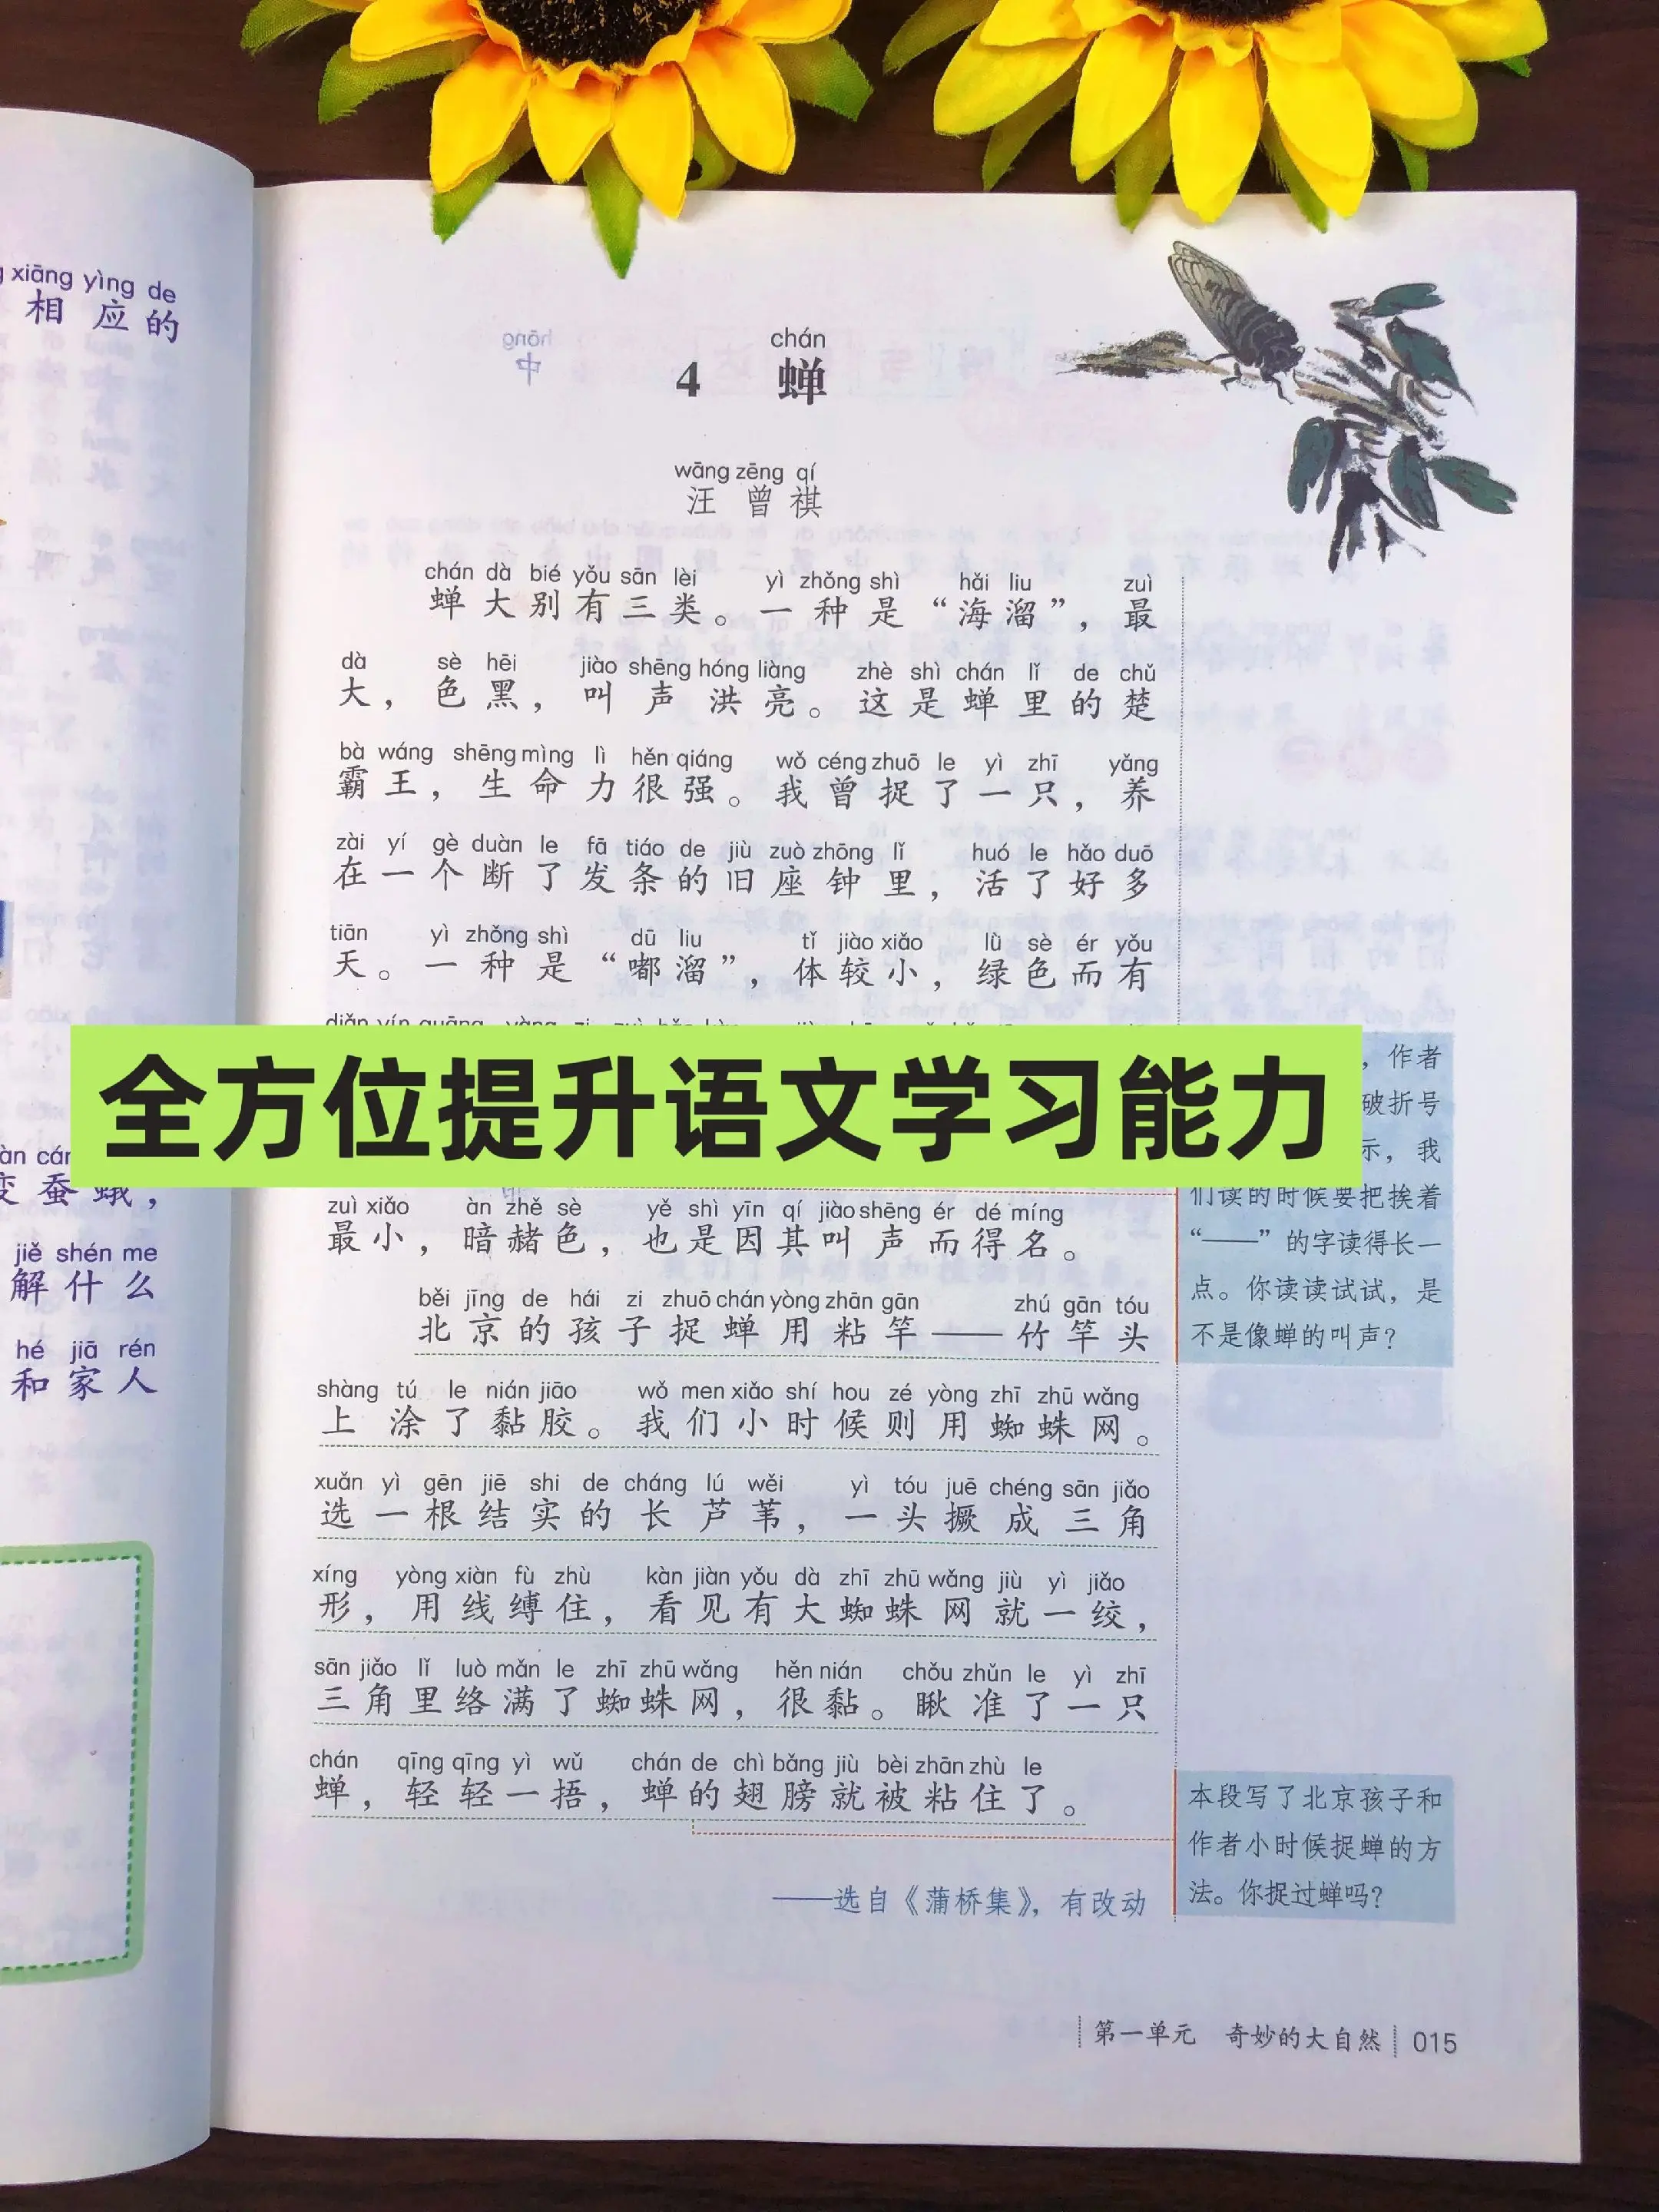 xiāng yìng de
相应的
àn cán
变蚕蛾，
jiě shén me
解什么
hé jiā rén
和家人
chán
4 蝉
wāng zēng qí
汪曾祺
chán dà bié yǒu sān lèi yì zhǒng shì hǎi liu zuì
蝉大别有三类。一种是“海溜”，最
dà sè hēi jiào shēng hóng liàng zhè shì chán lǐ de chǔ
大，色黑，叫声洪亮。这是蝉里的楚
bà wáng shēng mìng lì hěn qiáng wǒ céng zhuō le yì zhī yǎng
霸王，生命力很强。我曾捉了一只，养
zài yí gè duàn le fā tiáo de jiù zuò zhōng lǐ huó le hǎo duō
在一个断了发条的旧座钟里，活了好多
tiān yì zhǒng shì dū liu tǐ jiào xiǎo lǜ sè ér yǒu
天。一种是“嘟溜”，体较小，绿色而有
全方位提升语文学习能力
zuì xiǎo àn zhě sè yě shì yīn qí jiào shēng ér dé míng
最小，暗赭色，也是因其叫声而得名。
běi jīng de hái zi zhuō chán yòng zhān gān zhú gān tóu
北京的孩子捉蝉用粘竿——竹竿头
shàng tú le nián jiāo wǒ men xiǎo shí hou zé yòng zhī zhū wǎng
上涂了黏胶。我们小时候则用蜘蛛网。
xuǎn yì gēn jiē shi de cháng lú wěi yì tóu juē chéng sān jiǎo
选一根结实的长芦苇，一头撅成三角
xíng yòng xiàn fù zhù kàn jiàn yǒu dà zhī zhū wǎng jiù yì jiǎo
形，用线缚住，看见有大蜘蛛网就一绞，
sān jiǎo lǐ luò mǎn le zhī zhū wǎng hěn nián chǒu zhǔn le yì zhī
三角里络满了蜘蛛网，很黏。瞅准了一只
chán qīng qīng yì wǔ chán de chì bǎng jiù bèi zhān zhù le
蝉，轻轻一捂，蝉的翅膀就被粘住了。
——选自《蒲桥集》，有改动
，作者
破折号
示，我
们读的时候要把挨着
“——”的字读得长一
点。你读读试试，是
不是像蝉的叫声？
本段写了北京孩子和
作者小时候捉蝉的方
法。你捉过蝉吗？
第一单元 奇妙的大自然 015